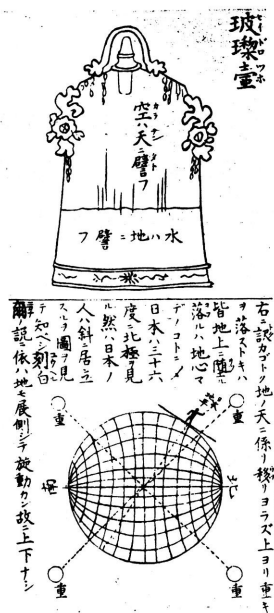 玻瓈壷
空ハ天ニ譬フ
水ハ地ニ譬フ
右ニ認カコトク地ノ天ニ係リ移リヨラズ上ヨリ重キ
ヲ落ストキハ
皆地上ニ墮ル
落ルハ地心マ
デノコトナリ
日本ハ三十六
度ニ北極ヲ見
ル然ハ日本ノ
人ハ斜ニ居立
スルヿ圖ヲ見
テ知ベシ刻白
爾ノ説ニ依ハ地モ展側シテ旋動カン故ニ上下ナシ
重
重
重
重